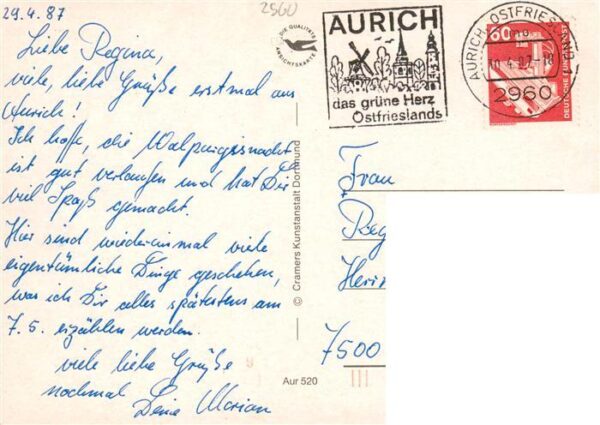 29.4.87
2960
Liebe Regina,
viele, liebe Grüße erstmal aus
Aurich!
Ich hoffe, die Walpurgisnacht
ist gut verlaufen und hat Dir
viel Spaß gemacht.
Hier sind wiedereinmal viele
eigentümliche Dinge geschehen,
was ich Dir alles spätestens am
7.5. erzählen werde.
viele liebe Grüße
nochmal Deine Marian
DIE QUALITÄTS
ANSICHTSKARTE
AURICH
das grüne Herz
Ostfrieslands
AURICH, OSTFRIESL
4.87-18
2960
60
DEUTSCHE BUNDESPOST
© Cramers Kunstanstalt Dortmund
Aur 520
Frau
Reg
Heinr
7500